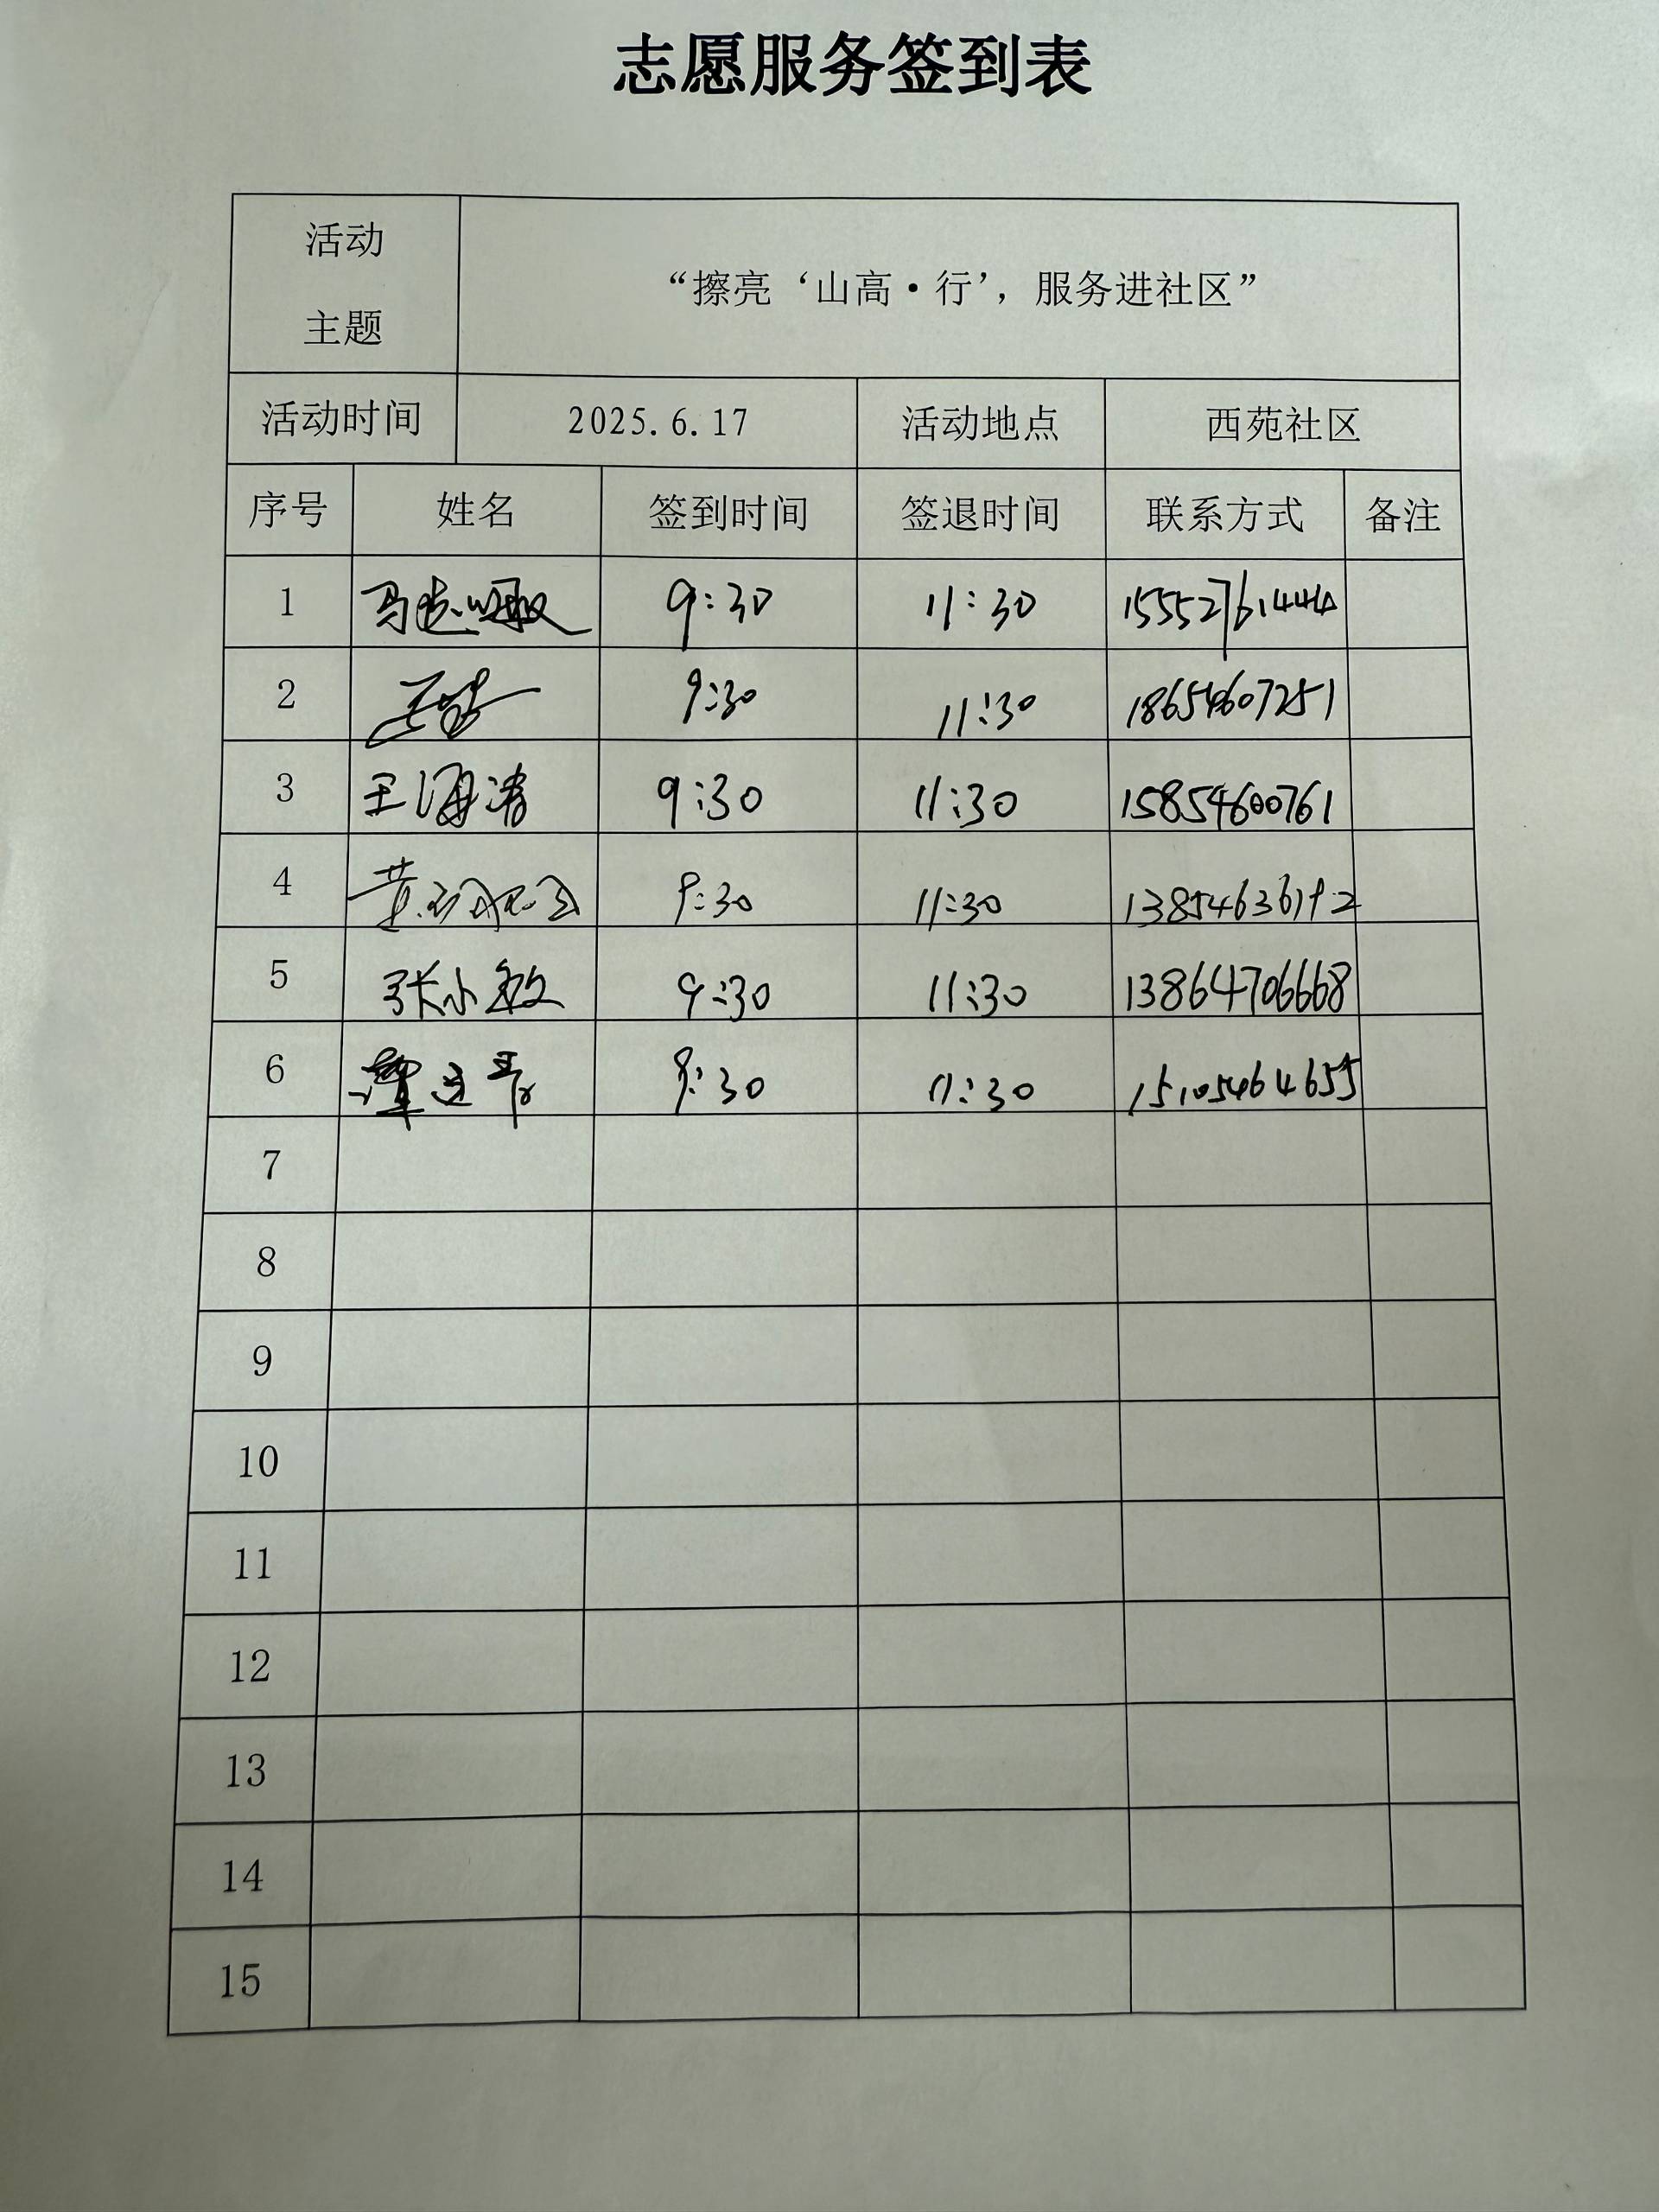 志愿服务签到表
活动
主题
“擦亮‘山高·行’，服务进社区”
活动时间 2025.6.17 活动地点 西苑社区
序号 姓名 签到时间 签退时间 联系方式 备注
1 9:30 11:30 15552761444
2 9:30 11:30 18654607251
3 王海涛 9:30 11:30 15854600761
4 9:30 11:30 13854636192
5 张小敏 9:30 11:30 13864706668
6 9:30 11:30 15105464655
7
8
9
10
11
12
13
14
15